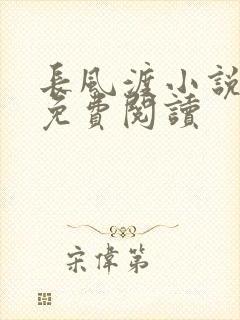 長風渡小說
免費閱讀
宋偉第